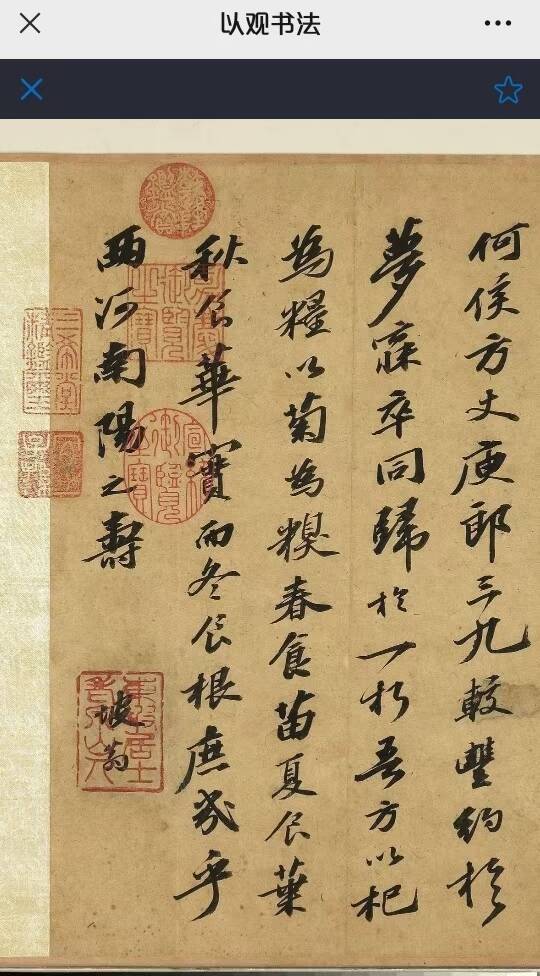 以观书法
何侯方丈庾郎三九較豐約於
夢寐卒同歸於一朽吾方以杞
為糧以菊為糗春食苗夏食葉
秋食華實而冬食根庶幾乎
西河南陽之壽
坡翁